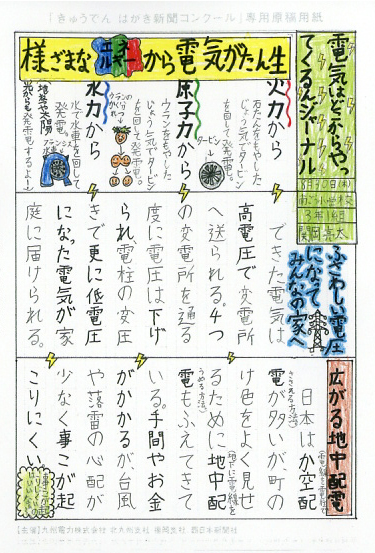 「きゅうでん はがき新聞コンクール」専用原稿用紙
電気はどこからやっ
てくるんジャーナル
8月30日(木)
3年1組
様ざまなエネルギーから電気がたん生
火力から
石たんをもやした
じょう気でタービン
を回して発電。
タービン
原子力から
ウランをもやした
じょう気でタービン
を回して発電。
水力から
水で水車を回して
発電。
フランシス水車
地ねつや太陽
光からも発電するよ
ふさわしい電圧
になって
みんなの家へ
できた電気は
高電圧で変電所
へ送られる。4つ
の変電所を通る
度に電圧は下げ
られ電柱の変圧
きで更に低電圧
になった電気が家
庭に届けられる。
広がる地中配電
日本はか空配
電が多いが町の
け色をよく見せ
るために地中配
電もふえてきて
いる。手間やお金
がかかるが台風
や落雷の心配が
少なく事こが起
こりにくい。
【主催】九州電力株式会社 北九州支社 福岡支社 西日本新聞社